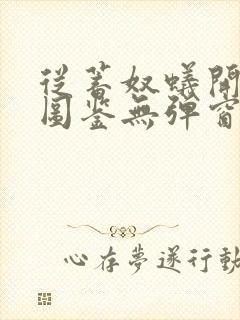 從蓄奴蟻開
圖鉴無彈窗
心存夢遂行動